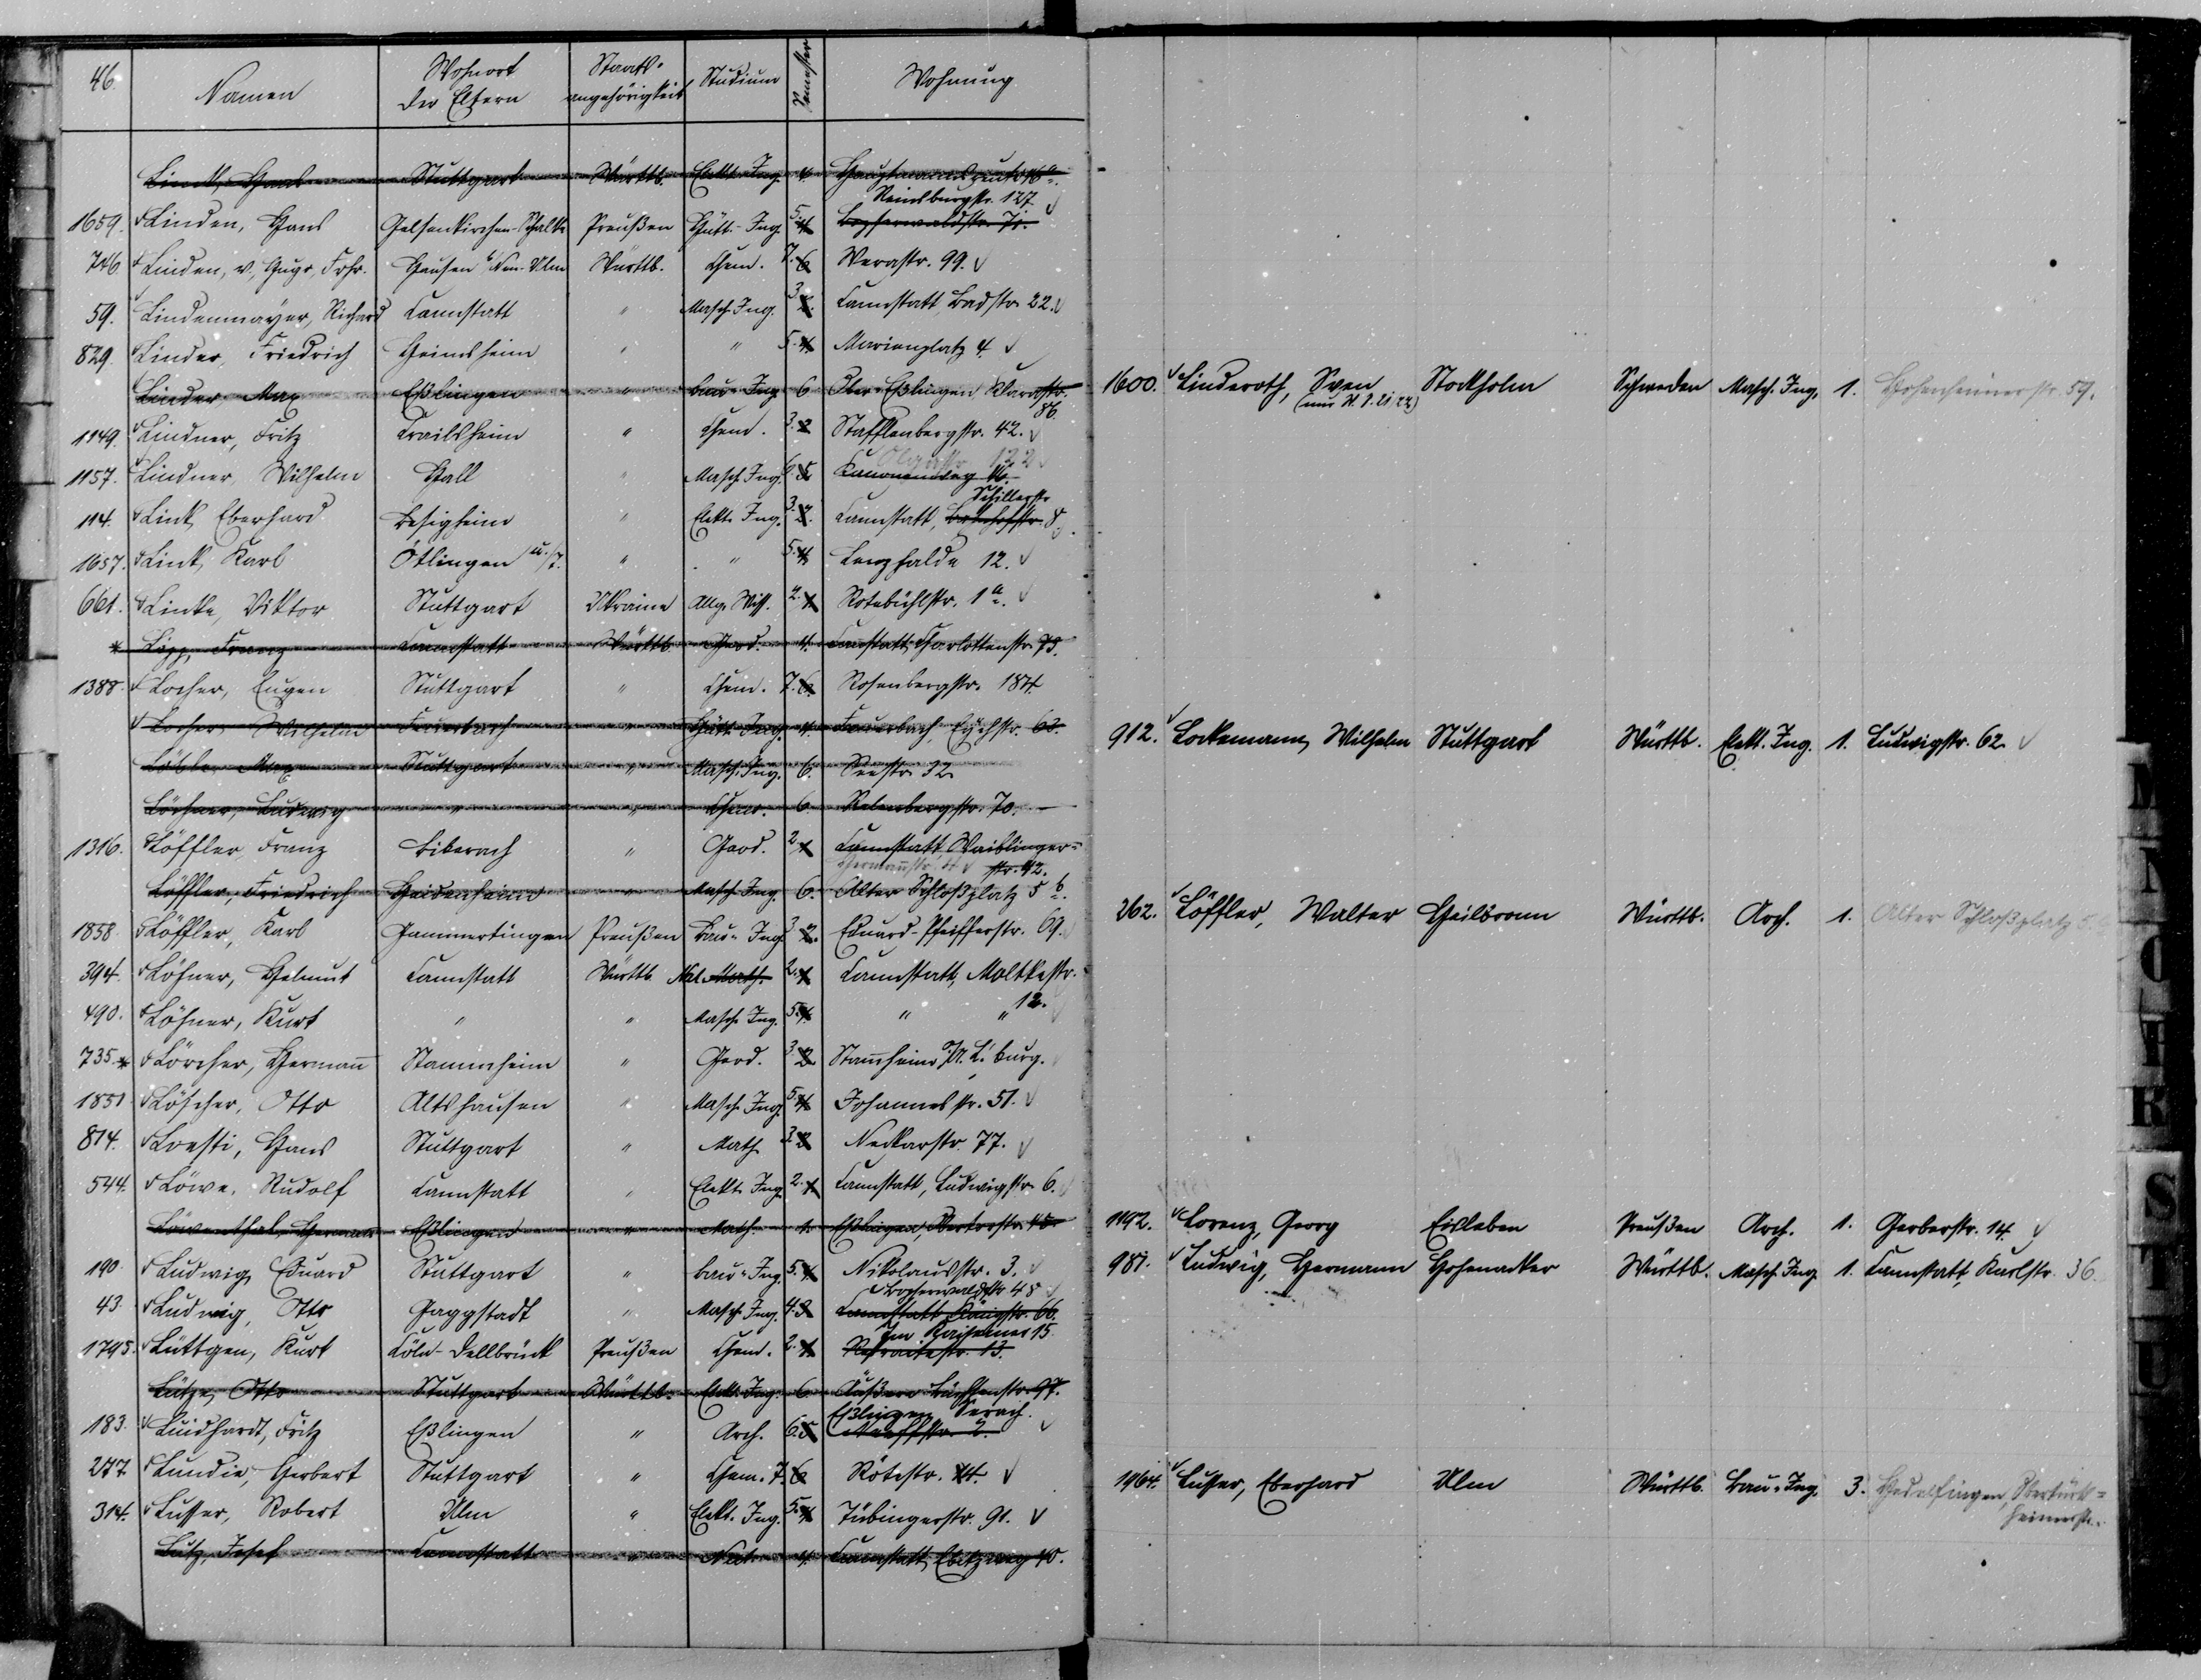 46. Namen Wohnort der Eltern Staats-angehörigkeit Studium Semester Wohnung
Stuttgart Württb. Elekt. Ing. 4.
Reinsburgstr. 127
1659. Linden, Hans Gelsenkirchen-Schalke Preußen Hütt.-Ing. 5. 4 Bopserwaldstr. 71.
746. Linden, v., Hugo, Frhr. Hausen b. Neu-Ulm Württb. Chem. 7. 6 Werastr. 99.
59. Lindenmayer, Richard Cannstatt " Masch. Ing. 3. Cannstatt, Badstr. 22.
829. Linder, Friedrich Heimsheim " " 5. 4. Marienplatz 4.
Linder, Max Eßlingen " Bau-Ing. 6
86.
1149. Lindner, Fritz Crailsheim " Chem. 3. 2 Stafflenbergstr. 42.
Olgastr. 122
1157. Lindner, Wilhelm Hall " Masch. Ing. 6. 5 Kanonenweg
Schillerstr.
114. Link, Eberhard Besigheim " Elekt. Ing. 3. 2. Cannstatt, Bahnhofstr. 8.
1657. Link, Karl Ötlingen u/T. " " 5. 4 Lenzhalde 12.
661. Linke, Viktor Stuttgart Ukraine Allg. Wiss. 2. 1 Rotebühlstr. 1a.
* Lipp, Franz Cannstatt Württb. Geod. 4. Cannstatt, Charlottenstr. 73.
1388. Locher, Eugen Stuttgart " Chem. 7. 6. Rosenbergstr. 184
Locher, Wilhelm Feuerbach " Hütt. Ing. 4. Feuerbach, 62.
Max Stuttgart " Masch. Ing. 6. Seestr. 32
Ludwig " " Chem. 6. Relenbergstr. 70.
1316. Löffler, Franz Biberach " Geod. 2. 1 Cannstatt, Waiblinger-
Hermannstr. str. 42.
Löffler, Friedrich Heidenheim " Masch. Ing. 6. Alter Schloßplatz 5 b.
1858. Löffler, Karl Gammertingen Preußen Bau-Ing. 3. 2. Eduard-Pfeifferstr. 69.
394. Löhner, Helmut Cannstatt Württb. Nat. Math. 2. 1 Cannstatt, Moltkestr.
12.
490. Löhner, Kurt " " Masch. Ing. 5. 4. " "
735. * Lörcher, Hermann Stammheim " Geod. 3. 2. Stammheim O/A. L'burg.
1851. Löscher, Otto Altshausen " Masch. Ing. 5. 4 Johannesstr. 51.
814. Loesti, Hans Stuttgart " Math. 3. 2 Neckarstr. 77.
544. Löwe, Rudolf Cannstatt " Elekt. Ing. 2. 1 Cannstatt, Ludwigstr. 6.
Löwenthal, Hermann Eßlingen " Math. 1. Eßlingen,
190. Ludwig, Eduard Stuttgart " Bau-Ing. 5. 4 Nikolausstr. 3.
Bopserwaldstr. 48
43. Ludwig, Otto Gaggstadt " Masch. Ing. 4. 3 Cannstatt, Königstr. 66.
Im Kaisemer 15.
1795. Lüttgen, Kurt Cöln-Dellbrück Preußen Chem. 2. 1. Retraitestr. 13.
Lütze, Otto Stuttgart Württb. Elekt. Ing. 6.
Eßlingen Serach.
183. Luidhardt, Fritz Eßlingen " Arch. 6. 5
277. Lundie, Herbert Stuttgart " Chem. 7. 6 Rötestr.
314. Lusser, Robert Ulm " Elekt. Ing. 5. 4 Tübingerstr. 91.
Lutz, Josef Cannstatt " Nat. 4. Cannstatt, Ebitzweg 40.
1600. Linderoth, Sven Stockholm Schweden Masch. Ing. 1. Hohenheimerstr. 59.
(nur W. S. 21/22)
912. Lockemann, Wilhelm Stuttgart Württb. Elekt. Ing. 1. Ludwigstr. 62
262. Löffler, Walter Heilbronn Württb. Arch. 1. Alter Schloßplatz 5
1192. Lorenz, Georg Eisleben Preußen Arch. 1. Gerberstr. 14.
981. Ludwig, Hermann Hohenacker Württb. Masch. Ing. 1. Cannstatt, Karlstr. 36.
1964. Lusser, Eberhard Ulm Württb. Bau-Ing. 3. Hedelfingen, Obertürk-
heimerstr.
S
T
U